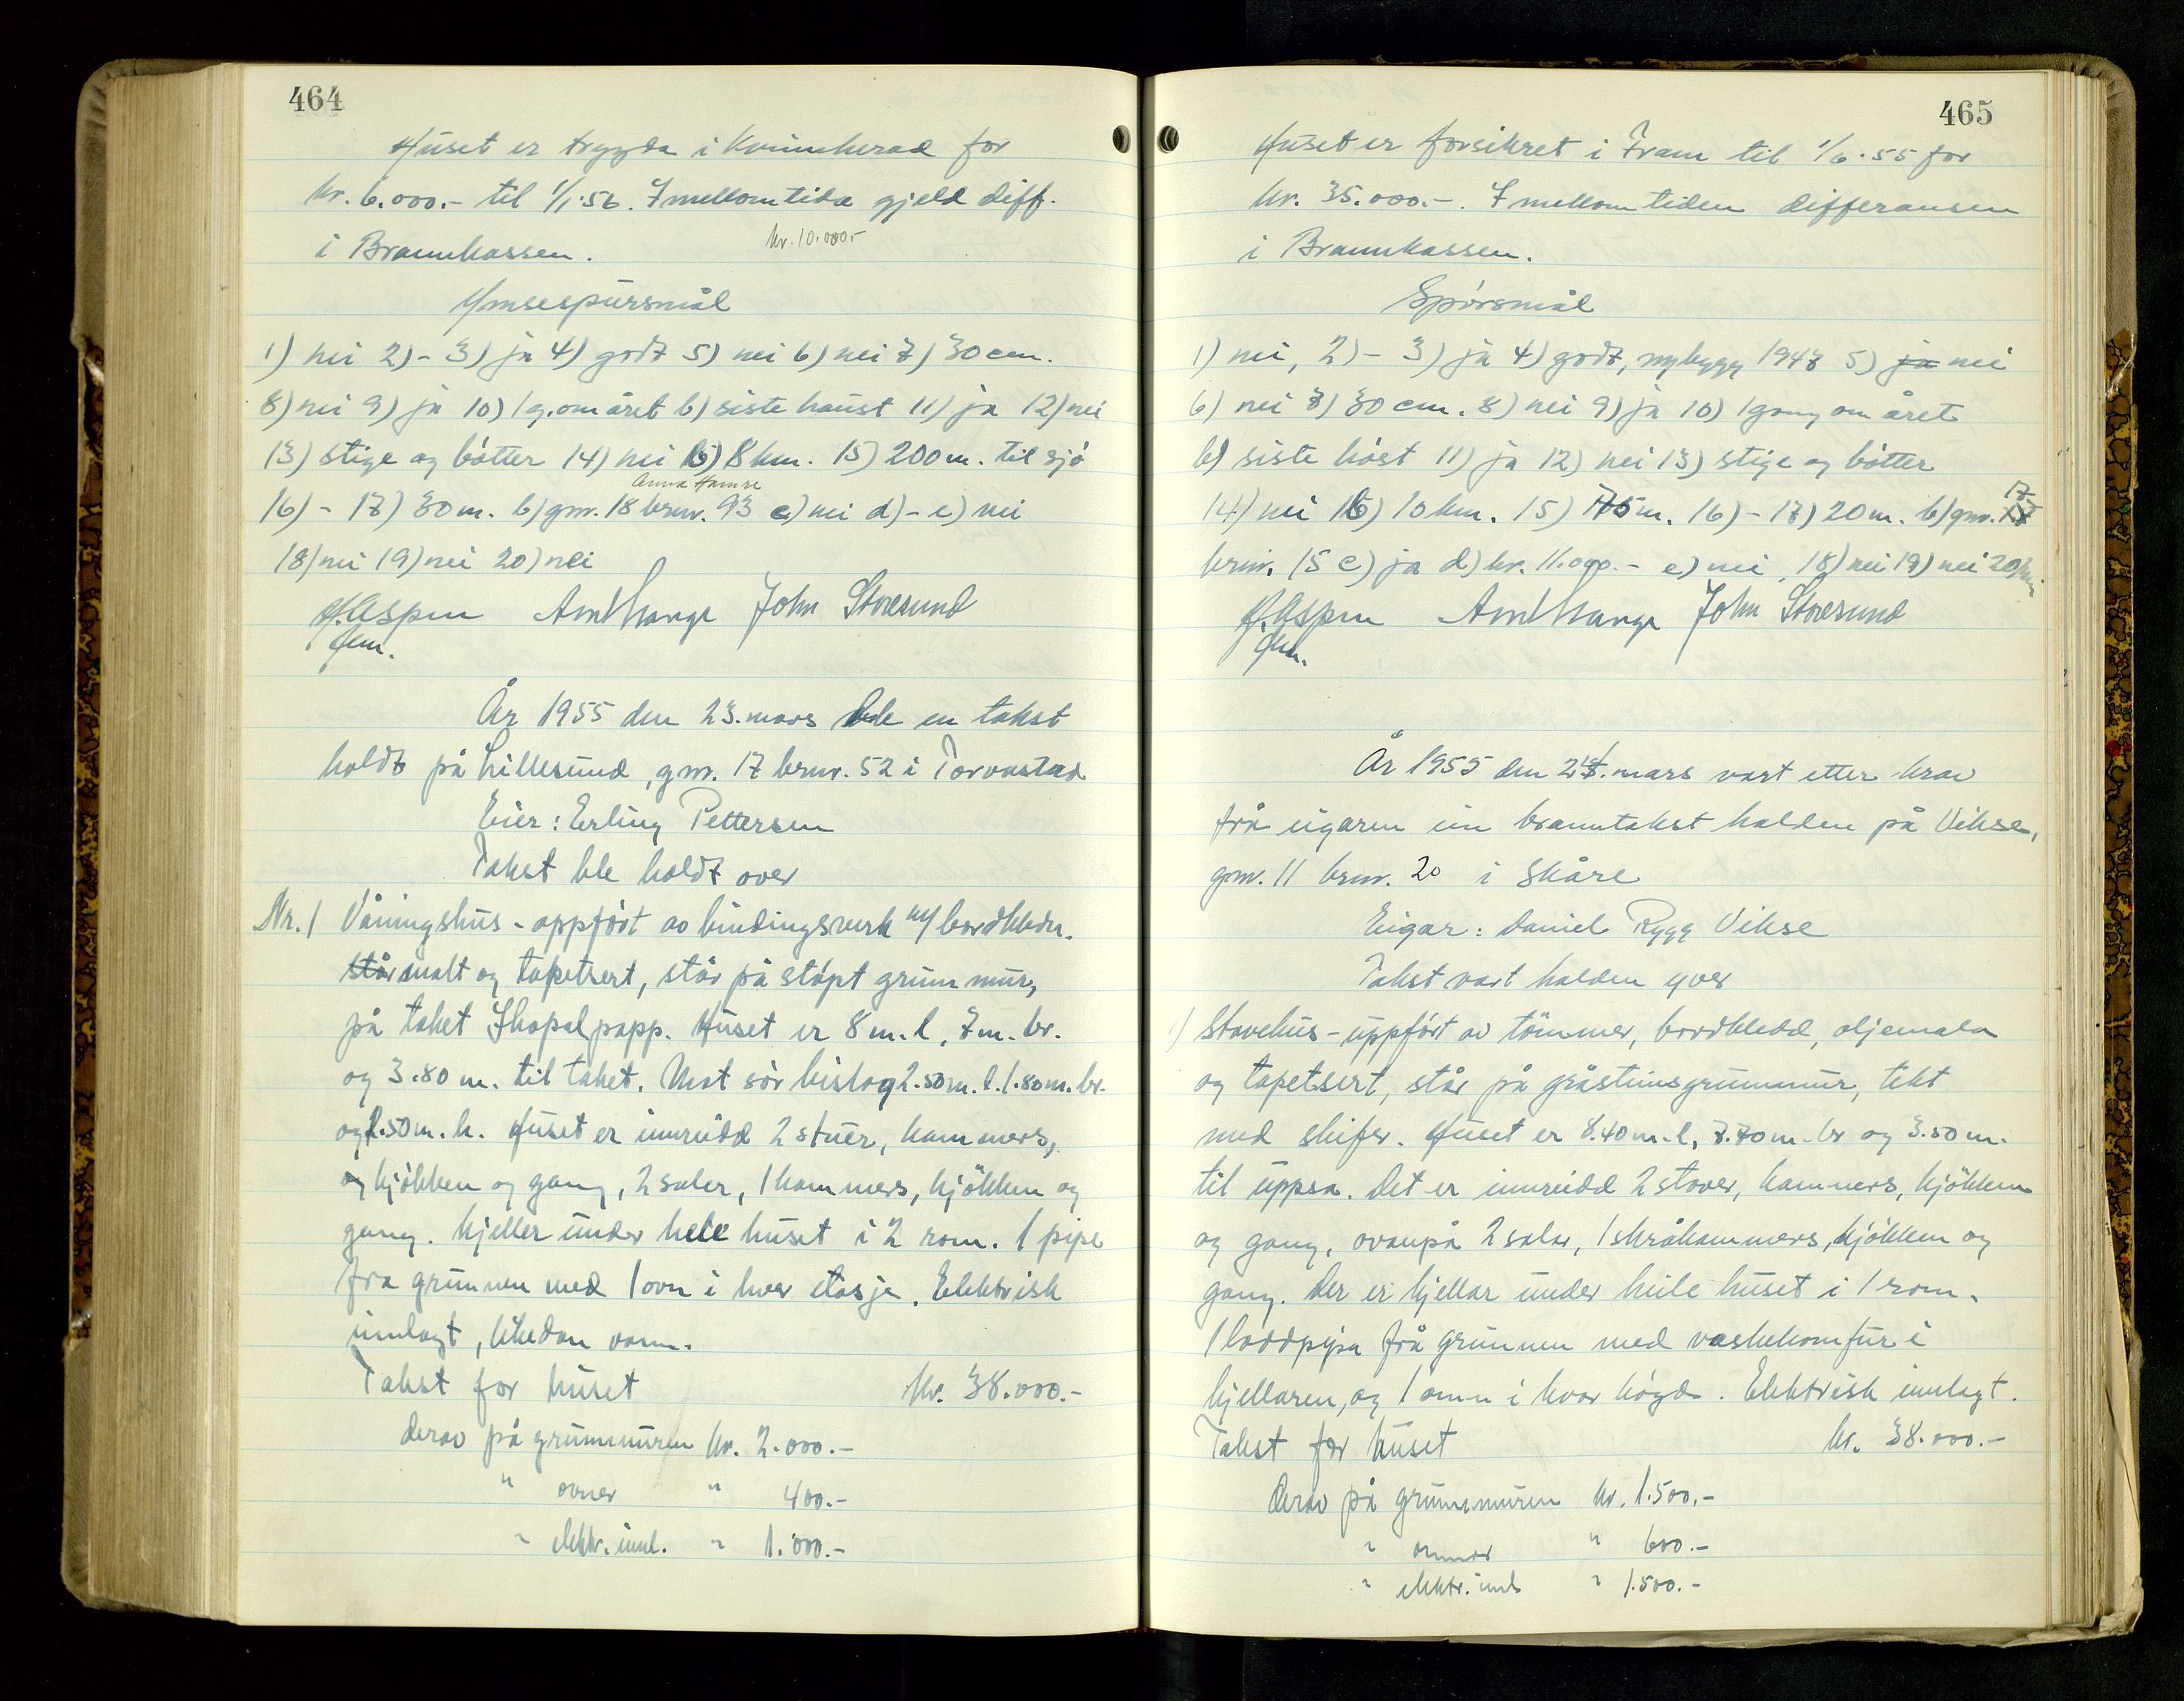 464
Huset er trygda i Kvinnherad for
kr. 6.000.- til 1/1.56. I mellomtida gjeld diff.
kr. 10.000.-
i Brannkassen.
Ymsespursmål
1) nei 2) - 3) ja 4) godt 5) nei 6) nei 7) 30 cm.
8) nei 9) ja 10) 1 g. om året b) siste haust 11) ja 12) nei
13) stige og bøtter 14) nei b) 8 km. 15) 200 m. til sjø
Anna Hamre
16) - 17) 30 m. b) gnr. 18 brnr. 93 c) nei d) - e) nei
18) nei 19) nei 20) nei
H. Aspen Arnt Hauge John Storesund
fm.
År 1955 den 23. mars ble en takst
holdt på Lillesund, gnr. 17 brnr. 52 i Torvastad
Eier: Erling Pettersen
Takst ble holdt over
Nr. 1 Våningshus - oppført av bindingsverk m/ bordkledn.
står malt og tapetsert, står på støpt grunnmur,
på taket Shopalpapp. Huset er 8 m. l, 7 m. br.
og 3.80 m. til taket. Mot sør bislag 2.50 m. l. 1.80 m. br.
og 2.50 m. h. Huset er innreidd 2 stuer, kammers,
og kjøkken og gang, 2 saler, 1 kammers, kjøkken og
gang. Kjeller under hele huset i 2 rom. 1 pipe
fra grunnen med 1 ovn i hver etasje. Elektrisk
innlagt, likedan vann.
Takst for huset kr. 38.000.-
derav på grunnmuren kr. 2.000.-
" ovner " 400.-
" elektr. innl. " 1.000.-
465
Huset er forsikret i Fram til 1/6.55 for
kr. 35.000.-. I mellomtiden differansen
i Brannkassen.
Spørsmål
1) nei, 2) - 3) ja 4) godt, nybygg 1947 5) ja nei
6) nei 7) 30 cm. 8) nei 9) ja 10) 1 gang om året
b) siste høst 11) ja 12) nei 13) stige og bøtter
14) nei b) 10 km. 15) 175 m. 16) - 17) 20 m. b) gnr. 17
brnr. 15 c) ja d) kr. 11.000.- e) nei, 18) nei 19) nei 20) nei
H. Aspen Arnt Hauge John Storesund
fm.
År 1955 den 24. mars vart etter krav
frå eigaren ein branntakst halden på Vikse,
gnr. 11 brnr. 20 i Skåre
Eigar: Daniel Rygg Vikse
Takst vart halden yver
1) Stovehus - uppført av tømmer, bordkledd, oljemala
og tapetsert, står på gråsteinsgrunnmur, tekt
med skifer. Huset er 8.40 m. l, 7.70 m. br og 3.50 m.
til uppsa. Det er innreidd 2 stover, kammers, kjøkken
og gang, ovanpå 2 salar, 1 skråkammers, kjøkken og
gang. Der er kjellar under heile huset i 1 rom.
1 loddpipa frå grunnen med vaskekomfur i
kjellaren, og 1 omn i kvar høgd. Elektrisk innlagt.
Takst for huset kr. 38.000.-
derav på grunnmuren kr. 1.500.-
" omnar " 600.-
" elektr. innl " 1.500.-